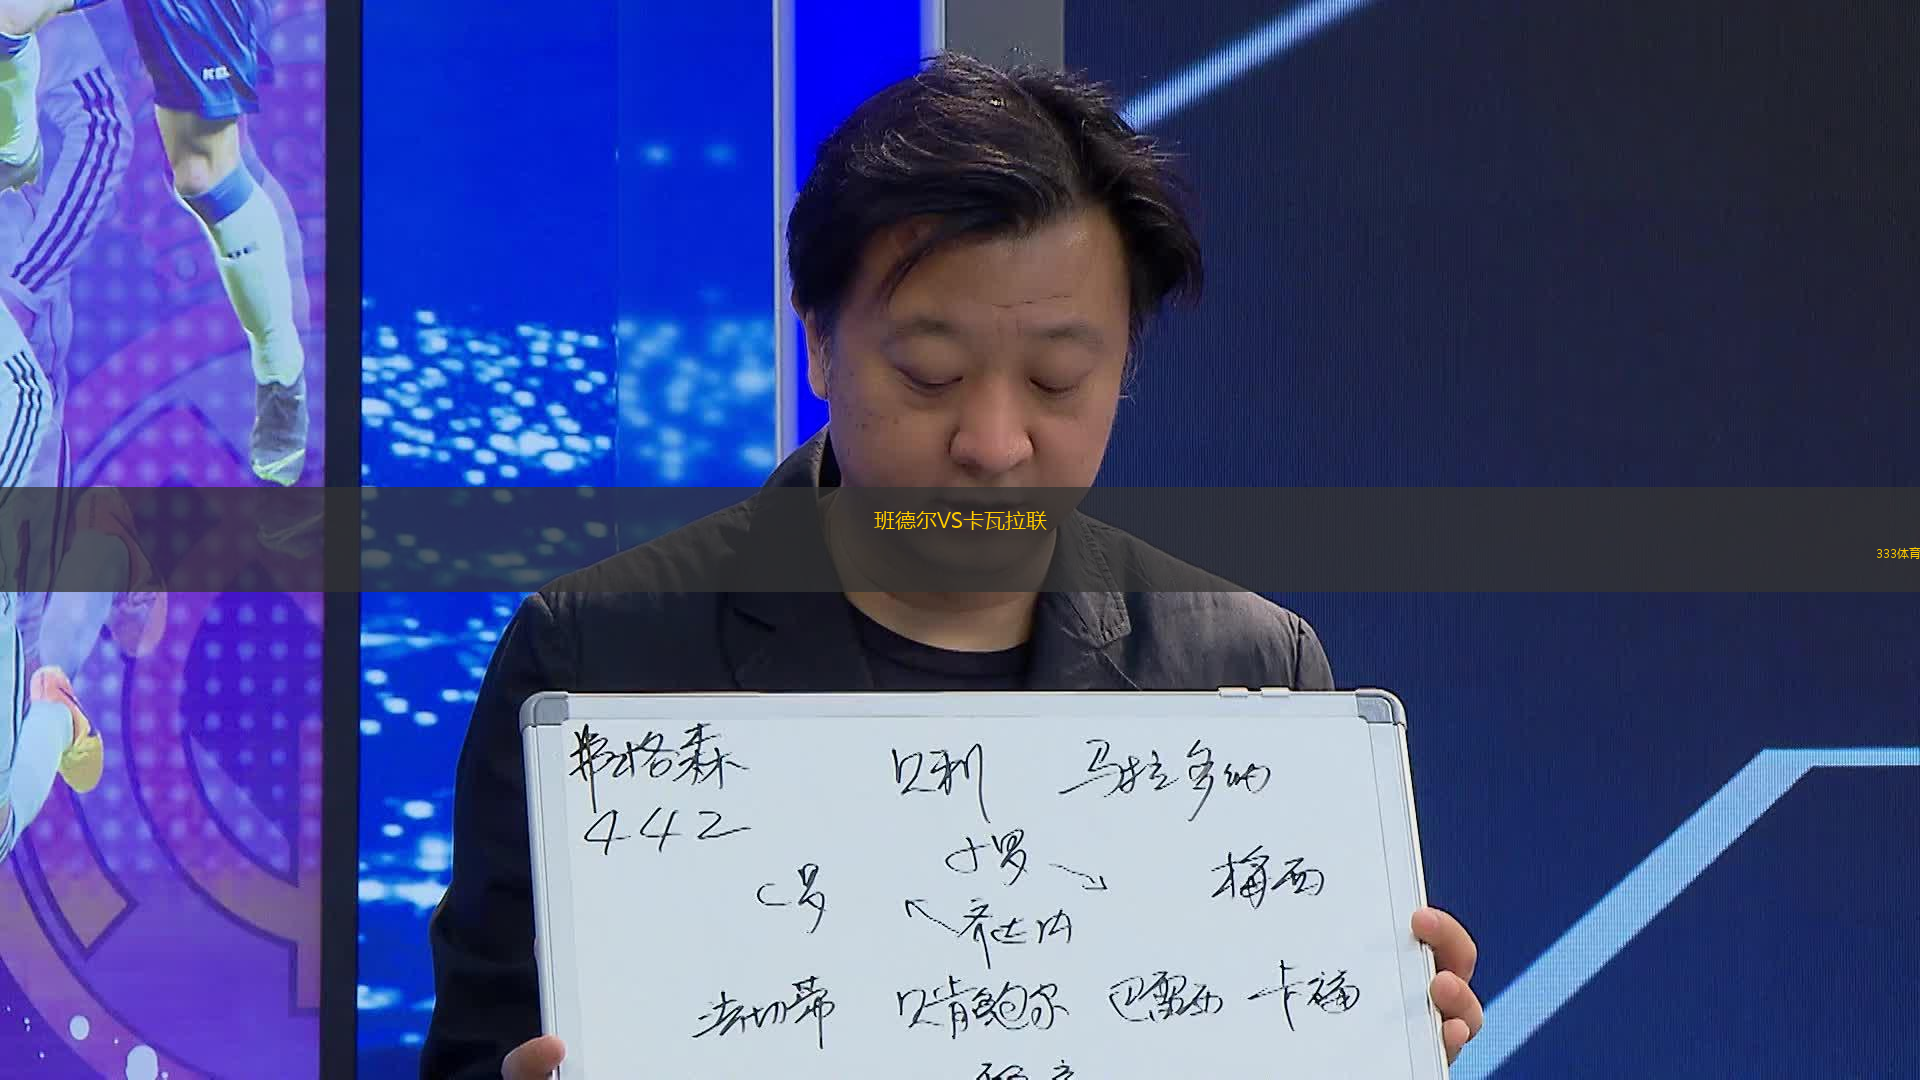 KELME
班德尔VS卡瓦拉联
333体育
弗格森 贝利 马拉多纳
442
小罗
C罗 梅西
齐达内
法切蒂 贝肯鲍尔 巴雷西 卡福